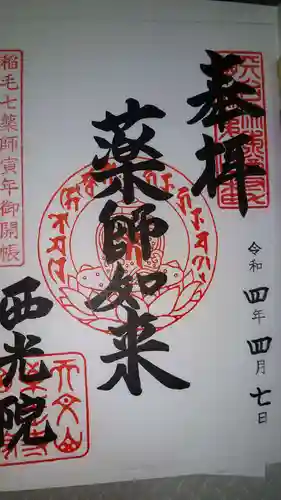 奉拝
令和四年四月七日
薬師如来
稲毛七薬師寅年御開帳
西光院